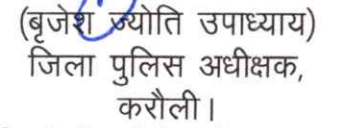 (बृजेश ज्योति उपाध्याय)
जिला पुलिस अधीक्षक,
करौली।